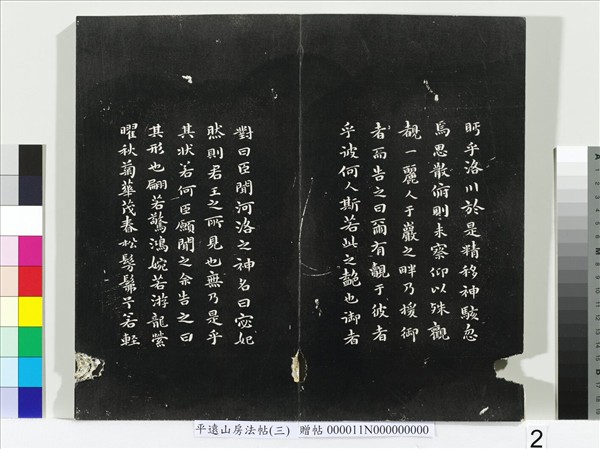 眄乎洛川於是精移神駭忽
焉思散俯則未察仰以殊觀
覩一麗人于巖之畔乃援御
者而告之曰爾有覿于彼者
乎彼何人斯若此之豔也御者
對曰臣聞河洛之神名曰宓妃
然則君王之所見也無乃是乎
其狀若何臣願聞之余告之曰
其形也翩若驚鴻婉若游龍榮
曜秋菊華茂春松髣髴兮若輕
平遠山房法帖(三) 贈帖 000011N000000000
2